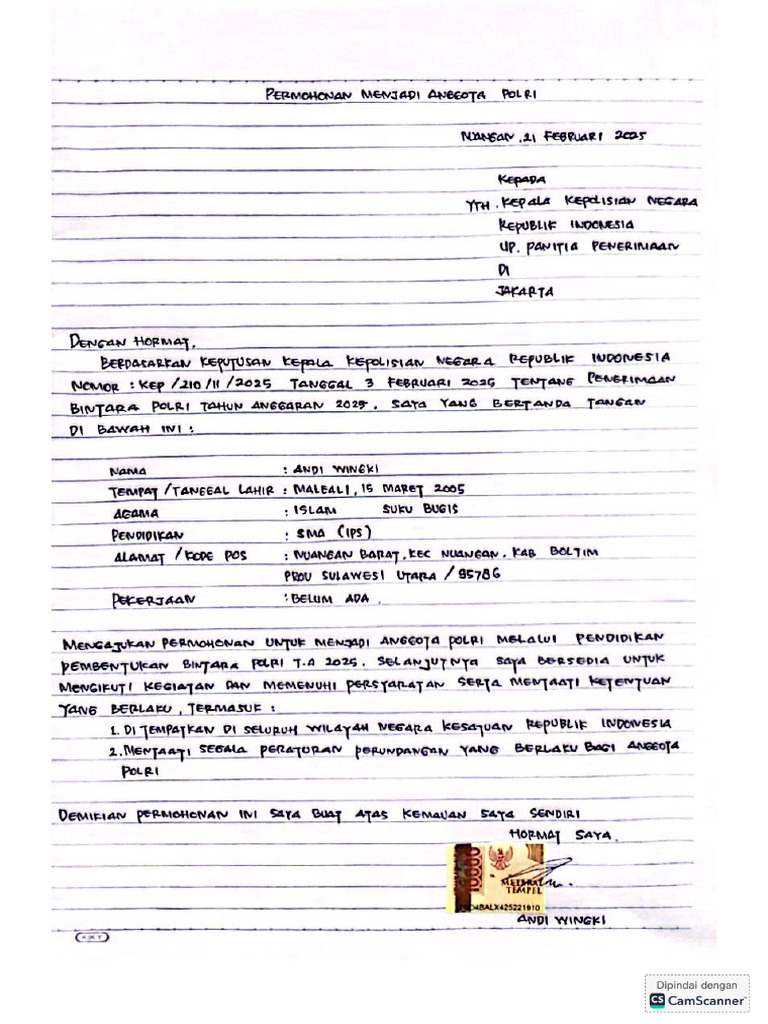 PERMOHONAN MENJADI ANGGOTA POLRI
NUANGAN, 21 FEBRUARI 2025
KEPADA
YTH. KEPALA KEPOLISIAN NEGARA
REPUBLIK INDONESIA
UP. PANITIA PENERIMAAN
DI
JAKARTA
DENGAN HORMAT,
BERDASARKAN KEPUTUSAN KEPALA KEPOLISIAN NEGARA REPUBLIK INDONESIA
NOMOR : KEP /210/II/2025 TANGGAL 3 FEBRUARI 2025 TENTANG PENERIMAAN
BINTARA POLRI TAHUN ANGGARAN 2025. SAYA YANG BERTANDA TANGAN
DI BAWAH INI :
NAMA : ANDI WINGKI
TEMPAT /TANGGAL LAHIR : MALEALI, 15 MARET 2005
AGAMA : ISLAM SUKU BUGIS
PENDIDIKAN : SMA (IPS)
ALAMAT /KODE POS : NUANGAN BARAT. KEC NUANGAN. KAB BOLTIM
PROV SULAWESI UTARA / 95786
PEKERJAAN : BELUM ADA.
MENGAJUKAN PERMOHONAN UNTUK MENJADI ANGGOTA POLRI MELALUI PENDIDIKAN
PEMBENTUKAN BINTARA POLRI T.A 2025. SELANJUTNYA SAYA BERSEDIA UNTUK
MENGIKUTI KEGIATAN DAN MEMENUHI PERSYARATAN SERTA MENTAATI KETENTUAN
YANG BERLAKU, TERMASUK :
1. DI TEMPATKAN DI SELURUH WILAYAH NEGARA KESATUAN REPUBLIK INDONESIA
2. MENTAATI SEGALA PERATURAN PERUNDANGAN YANG BERLAKU BAGI ANGGOTA
POLRI
DEMIKIAN PERMOHONAN INI SAYA BUAT ATAS KEMAUAN SAYA SENDIRI
HORMAT SAYA.
10000
METERAI
TEMPEL
ANDI WINGKI
KKY
Dipindai dengan
CS CamScanner